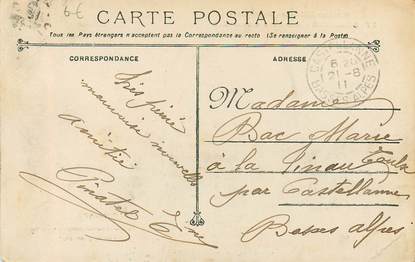 6€
CARTE POSTALE
Tous les Pays étrangers n'acceptent pas la Correspondance au recto (Se renseigner à la Poste)
CORRESPONDANCE
ADRESSE
très peiné
mauvaise nouvelle
amitié
Pinatel
Madame
Bac Marie
à la
par Castellanne
Basses alpes
21-8
11
BASSES-ALPES